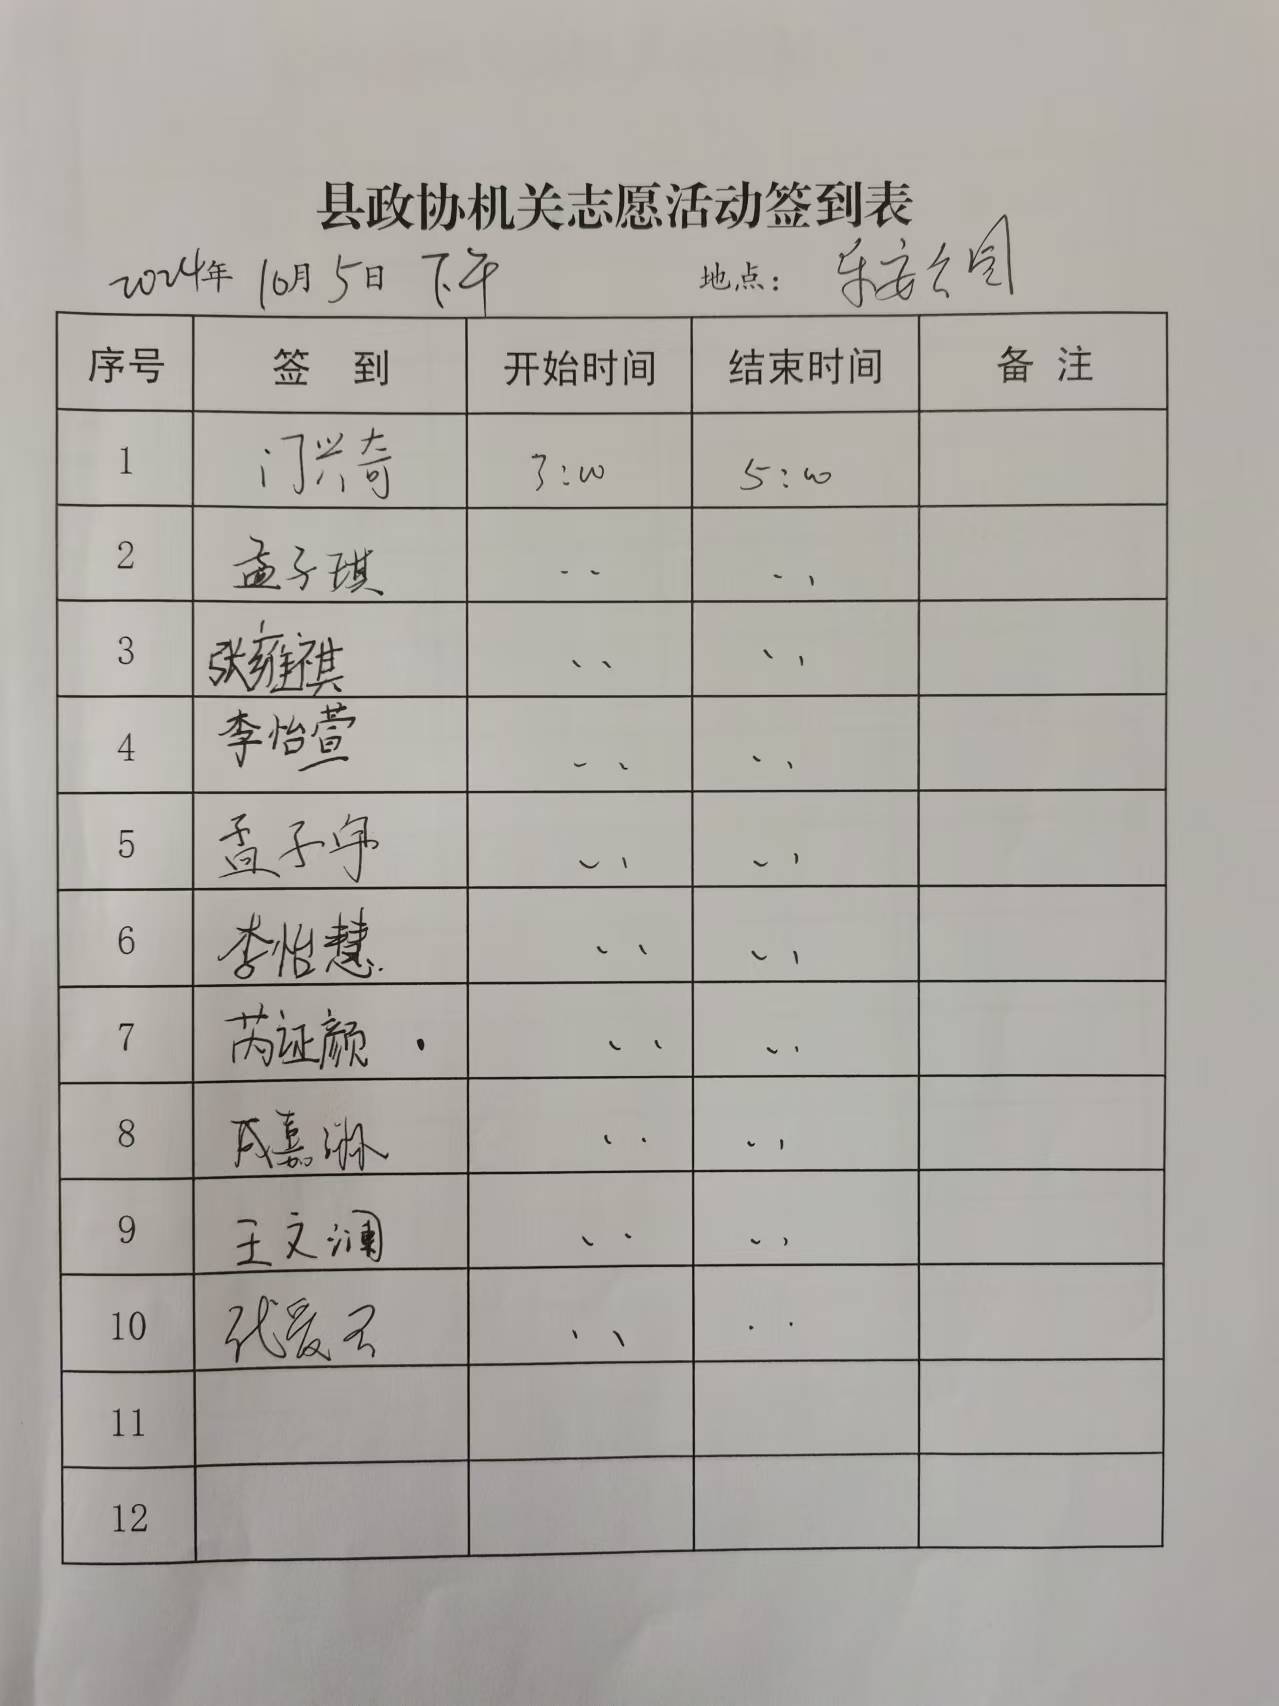 县政协机关志愿活动签到表
2024年 10月5日 下午 地点：乐安公园
序号 签 到 开始时间 结束时间 备 注
1 门兴奇 3:00 5:00
2 孟子琪
3 张雍祺
4 李怡萱
5 孟子宇
6 李怡慧
7 芮证颜
8 成嘉琳
9 王文澜
10
11
12